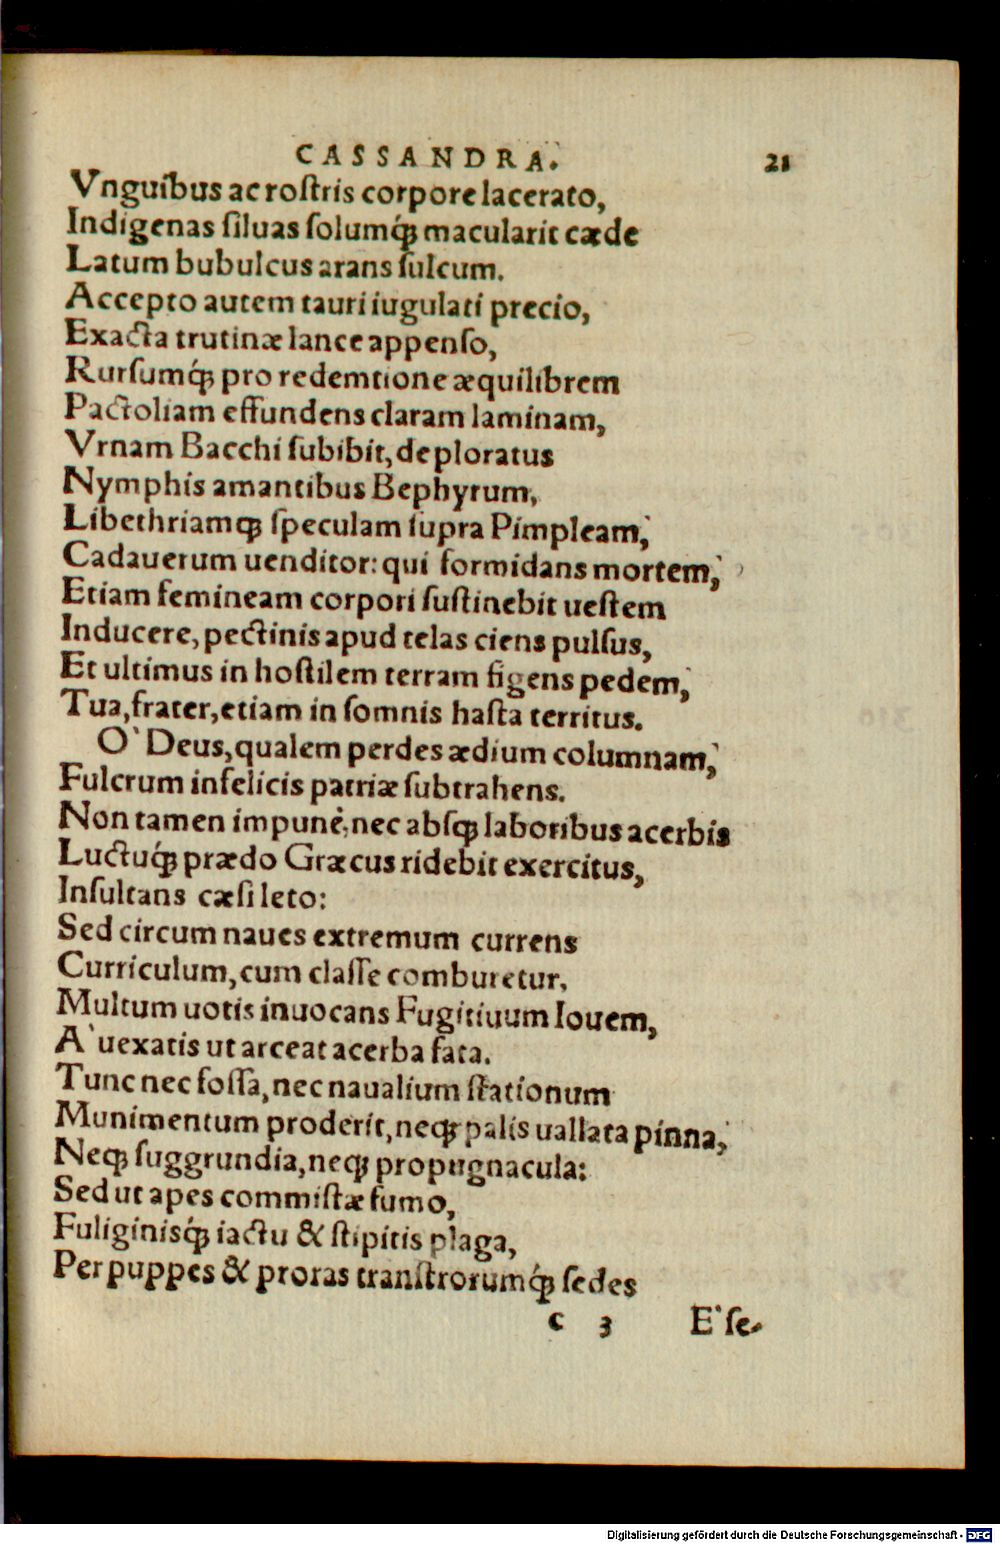 CASSANDRA. 21
Vnguibus ac rostris corpore lacerato,
Indigenas siluas solumq́; macularit cæde
Latum bubulcus arans sulcum.
Accepto autem tauri iugulati precio,
Exacta trutinæ lance appenso,
Rursumq́; pro redemtione æquilibrem
Pactoliam effundens claram laminam,
Vrnam Bacchi subibit, deploratus
Nymphis amantibus Bephyrum,
Libethriamq; speculam supra Pimpleam,
Cadauerum uenditor: qui formidans mortem,
Etiam femineam corpori sustinebit uestem
Inducere, pectinis apud telas ciens pulsus,
Et ultimus in hostilem terram figens pedem,
Tua, frater, etiam in somnis hasta territus.
O' Deus, qualem perdes ædium columnam,
Fulcrum infelicis patriæ subtrahens.
Non tamen impunè, nec absq; laboribus acerbis
Luctuq́; prædo Græcus ridebit exercitus,
Insultans cæsi leto:
Sed circum naues extremum currens
Curriculum, cum classe comburetur,
Multum uotis inuocans Fugitiuum Iouem,
A' uexatis ut arceat acerba fata.
Tunc nec fossa, nec naualium stationum
Munimentum proderit, neq; palis uallata pinna,
Neq; suggrundia, neq; propugnacula:
Sed ut apes commistæ fumo,
Fuliginisq́; iactu & stipitis plaga,
Per puppes & proras transtrorumq́; sedes
c 3 E' se-
Digitalisierung gefördert durch die Deutsche Forschungsgemeinschaft - DFG